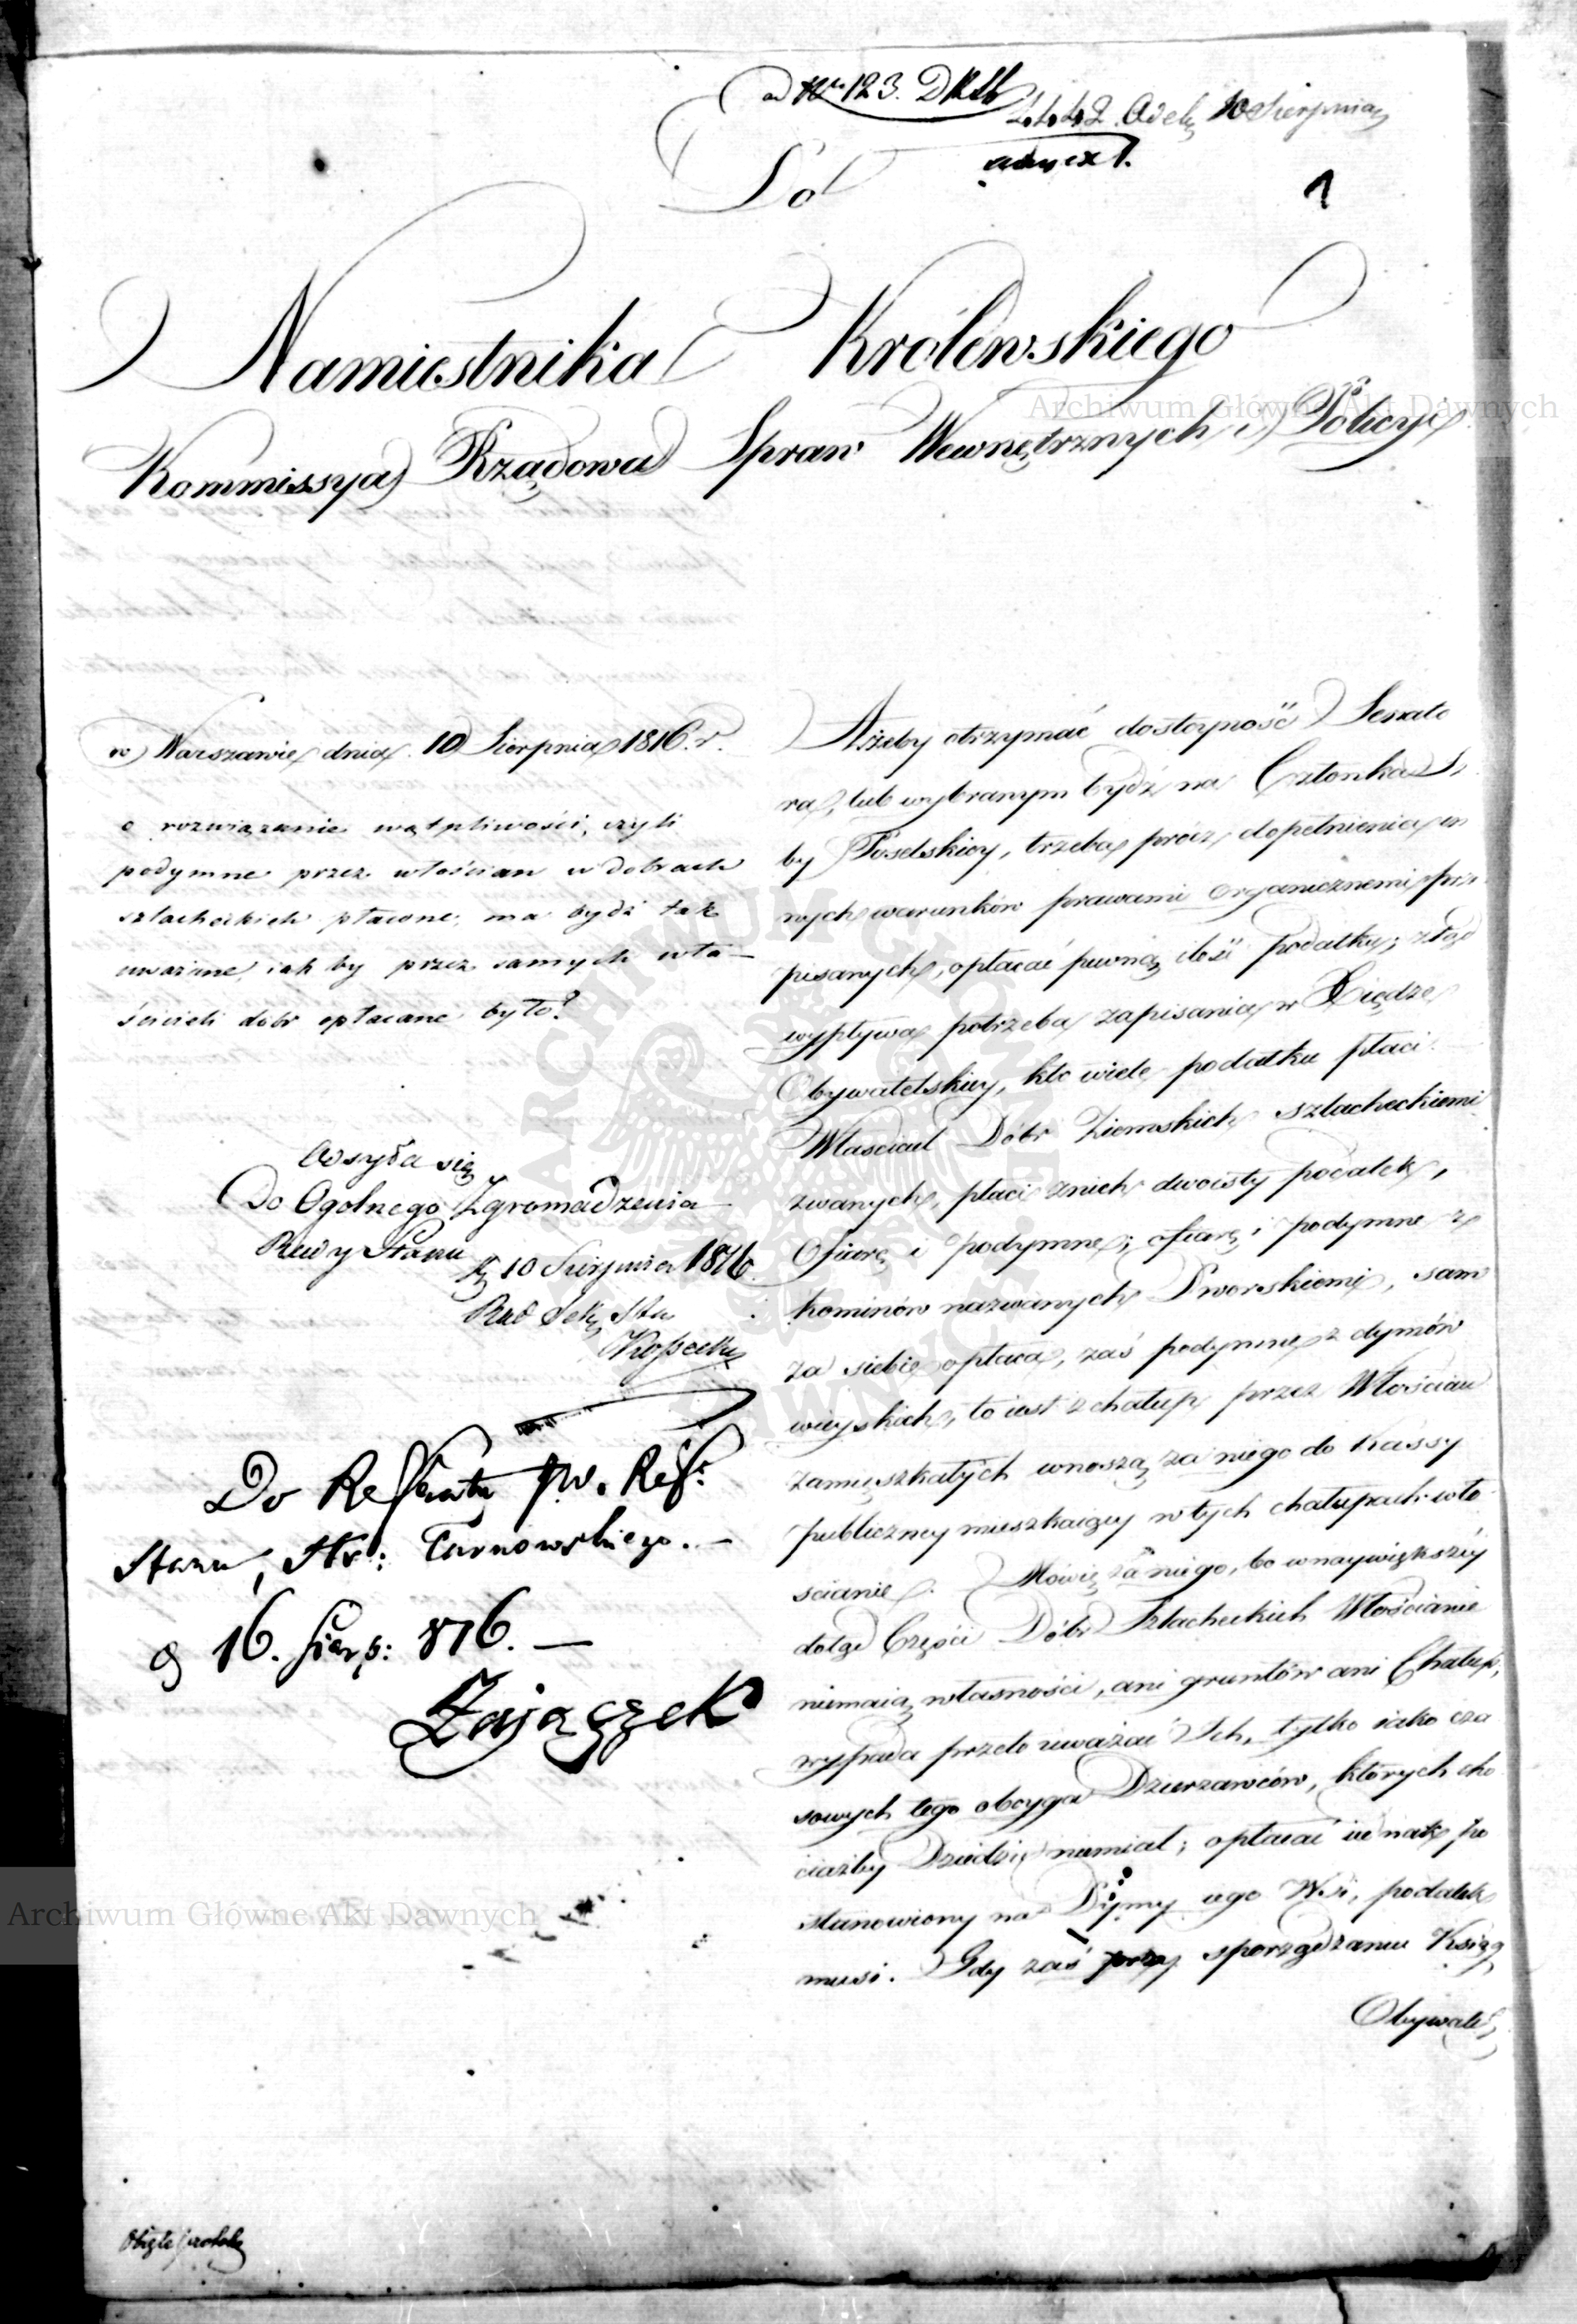 ad Nro 123. DRSt
4442 Odeb. 10 Sierpnia
annex 1.
1
Do
Namiestnika Królewskiego
Kommissya Rządowa Spraw Wewnętrznych i Policyi
w Warszawie dnia 10 Sierpnia 1816. r.
o rozwiązanie wątpliwości, czyli
podymne przez włościan w dobrach
szlacheckich płacone, ma bydź tak
uważane, iak by przez samych wła-
ścicieli dóbr opłacane było?
Odsyła się
Do Ogolnego Zgromadzenia
Rady Stanu
10 Sierpnia 1816
Rad Sek. Stu
Kossecki
Do Referatu Stanu, Hr: Tarnowskiego. —
d 16. Sierp: 816. —
Zajączek
Ażeby otrzymać dostoyność Senato
ra, lub wybranym bydź na Członka Iz
by Poselskiey, trzeba prócz dopełnienia in
nych warunków prawami organicznemi prze
pisanych, opłacać pewną ilość podatku; ztąd
wypływa potrzeba zapisania w Xiędze
Obywatelskiey, kto wiele podatku płaci.
Właściciel Dóbr Ziemskich szlacheckiemi
zwanych, płaci z nich dwoisty podatek,
Ofiarę i podymne; ofiarę i podymne z
kominów nazwanych Dworskiemi, sam
za siebie opłaca, zaś podymne z dymów
wieyskich, to iest z chałup przez Włościan
zamieszkałych wnoszą za niego do Kassy
publiczney mieszkaiący w tych chałupach wło
ścianie. Mówię za niego, bo w naywiększey
dotąd Części Dóbr Szlacheckich Włościanie
niemaią własności, ani gruntów ani Chałup,
wypada przeto uważać Ich, tylko iako cza
sowych tego oboyga Dzierzawców, których cho
ciażby Dziedzic niemiał; opłacać iednak po
stanowiony na Dymy iego Wsi, podatek
musi. Gdy zaś przy sporządzaniu Xsiąg
Obywatel
Archiwum Główne Akt Dawnych
Archiwum Główne Akt Dawnych
ARCHIWUM GŁÓWNE AKT DAWNYCH